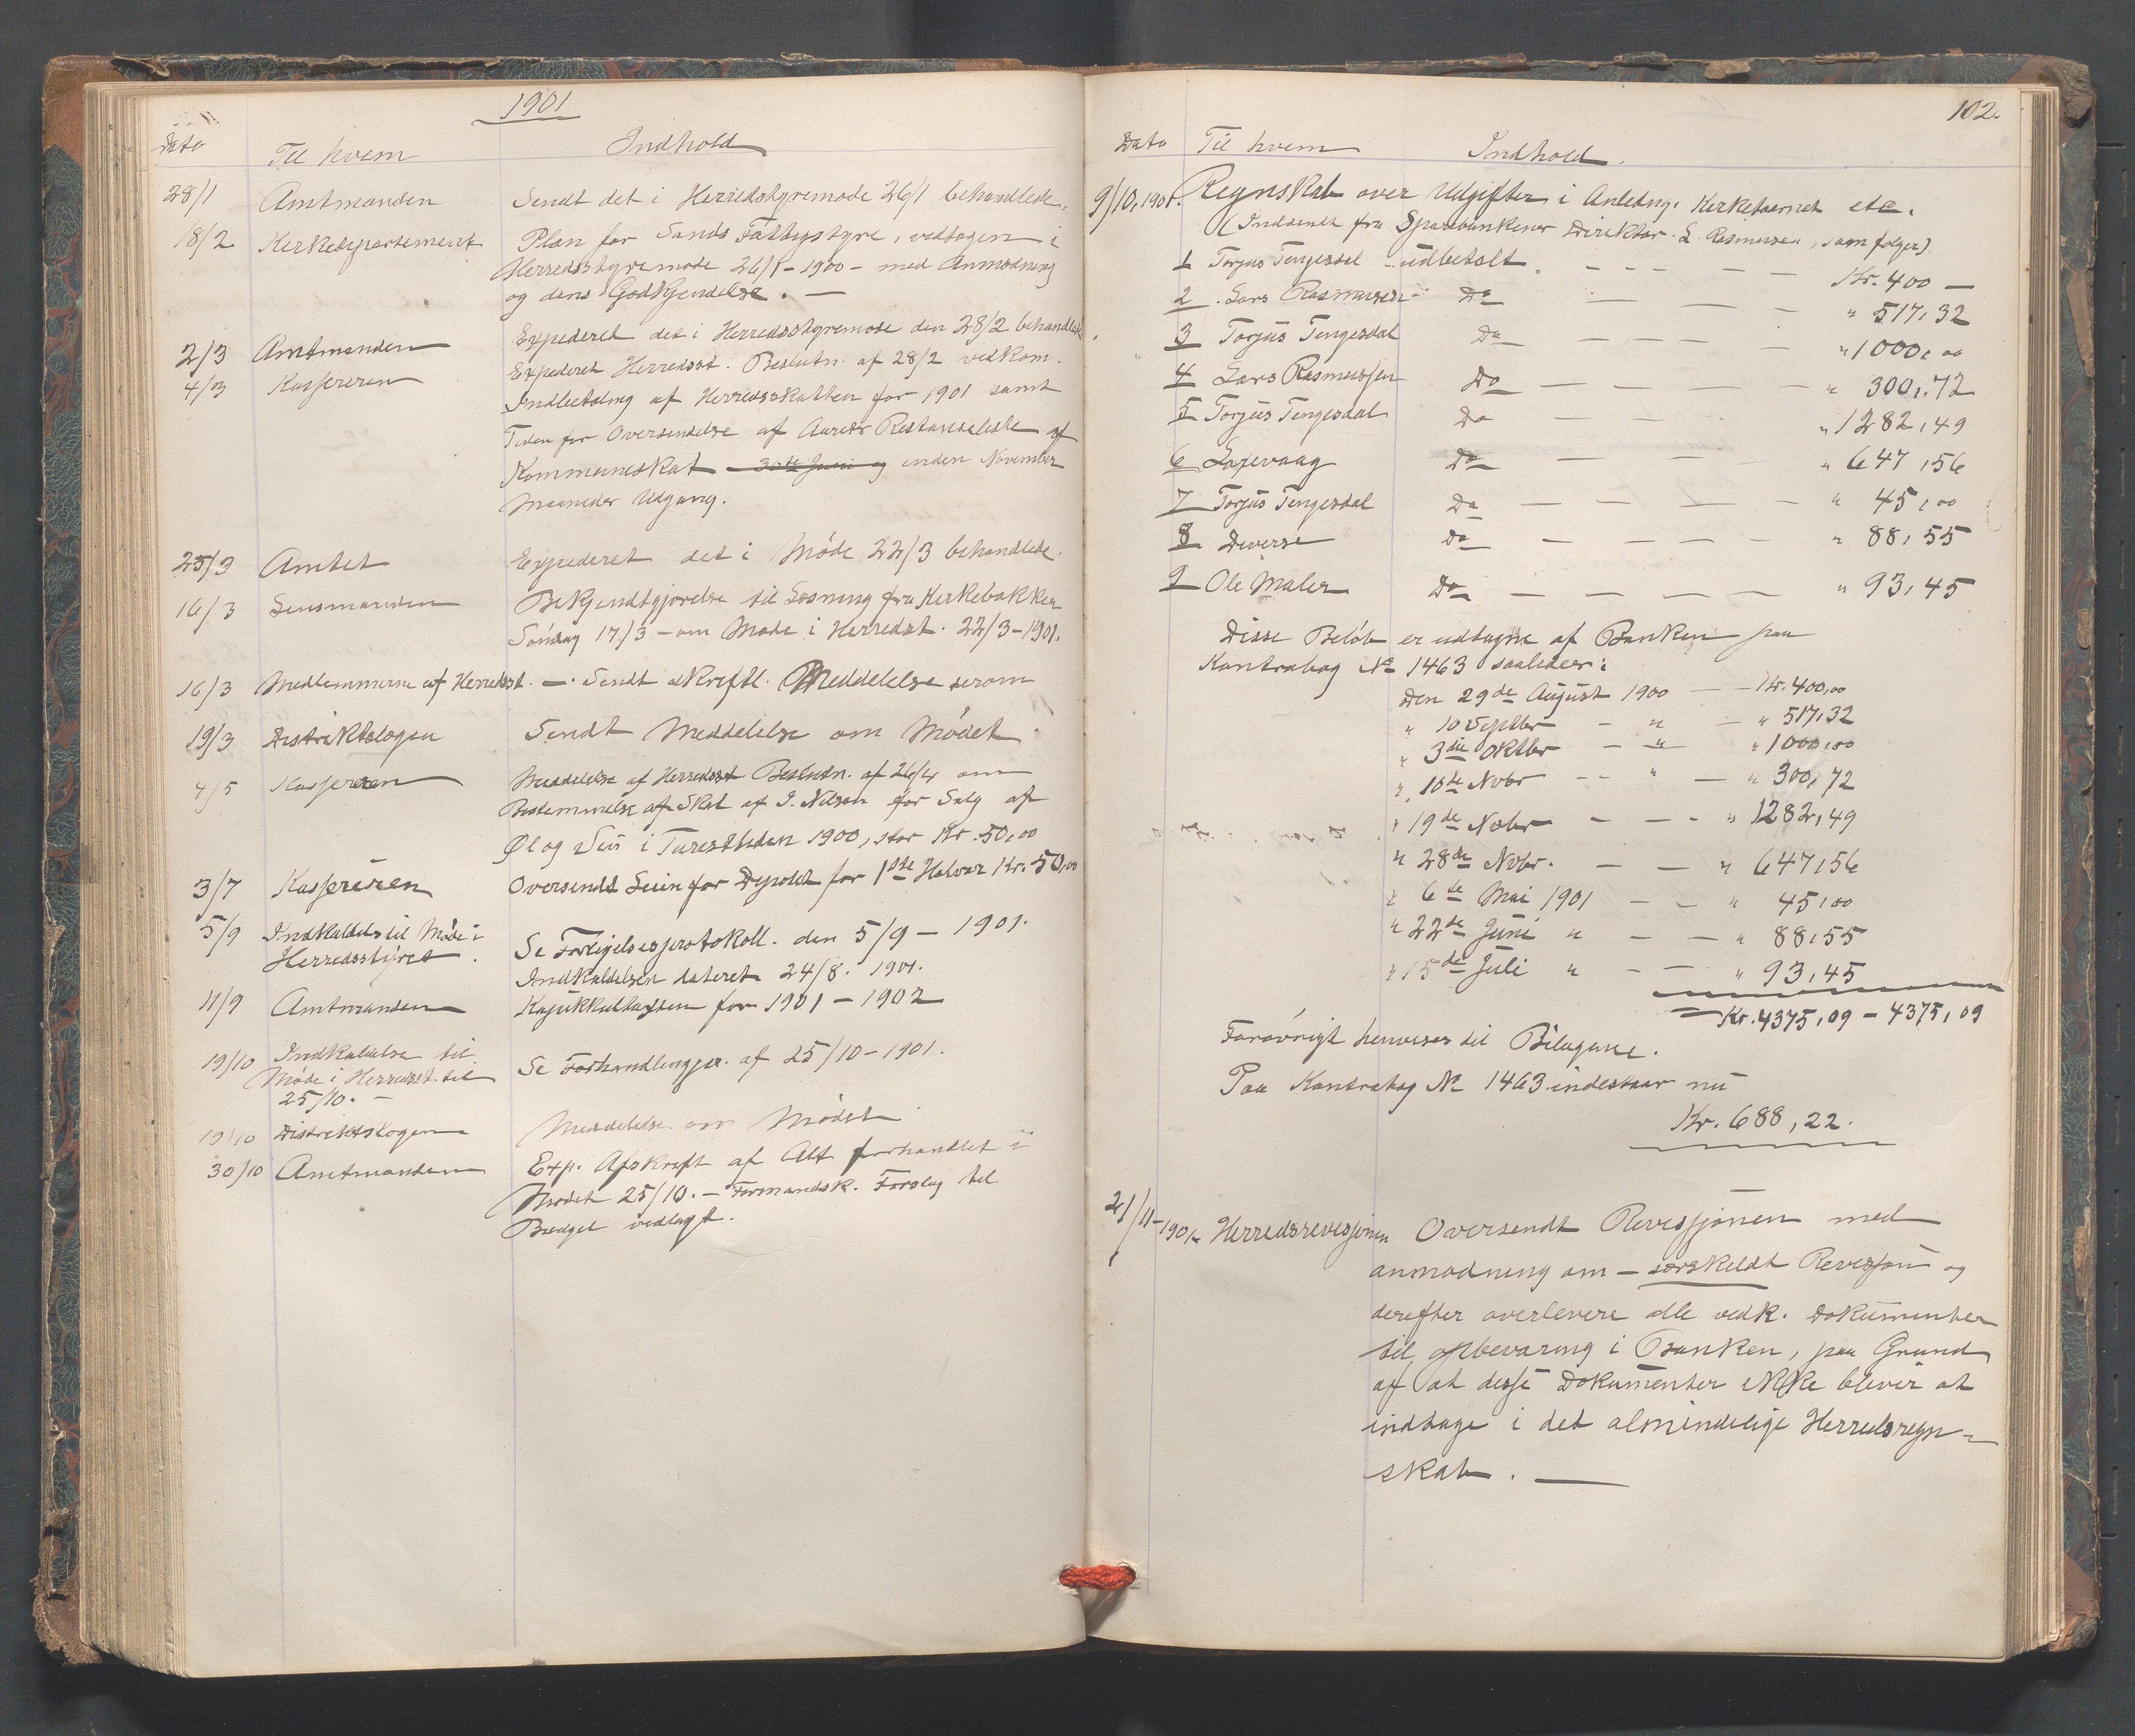 1901
Dato Til hvem Indhold
28/1 Amtmanden Sendt det i Herredstyremøde 26/1 behandlede.
18/2 Kirkedepartementet Plan for Sands Fattigstyre, vedtagen i
Herredsstyremøde 26/1 - 1900 - med Anmodning
og dens Godkjendelse. —
2/3 Amtmanden Expederet det i Herredsstyremøde den 28/2 behandlede
4/3 Kassereren Expederet Herredsst. Beslutn. af 28/2 vedkom.
Indbetaling af Herredsskatten for 1901 samt
Tiden for Oversendelse af Aarets Restanseliste af
Kommuneskat 30te Juni og inden November
Maaneds Udgang.
25/3 Amtet Expederet det i Møde 22/3 behandlede.
16/3 Lensmanden Bekjendtgjørelse til Læsning fra Kirkebakken
Søndag 17/3 - om Møde i Herredst. 22/3 - 1901.
16/3 Medlemmerne af Herredsst. — Sendt skriftl. Meddelelse derom
19/3 Distriktslægen Sendt Meddelelse om Mødet
4/5 Kassereren Meddelelse af Herredsst Beslutn. af 26/4 om
Bestemmelse af Skat af J. Nilsen for Salg af
Øl og Vin i Turesttiden 1900, stor Kr. 50,00
3/7 Kassereren Oversendt Leien for Depotet for 1ste Halvår Kr. 50,00
5/9 Indkaldels til Møde i Se Forligelsesprotokoll. den 5/9 - 1901.
Herredsstyret. Indkaldelsen dateret 24/8. 1901.
11/9 Amtmanden for 1901 - 1902
19/10 Indkaldelse til Se Forhandlingspr. af 25/10 - 1901.
Møde i Herredst. til
25/10. —
19/10 Distriktslægen Meddelelse om Mødet
30/10 Amtmanden Exp. Afskrift af Alt forhandlet i
Mødet 25/10. — Formandsk. Forslag til
Budget vedlagt.
102.
Dato Til hvem Indhold.
9/10, 1901. Regnskab over Udgifter i Anledng. Kirketaarnet etc.
(Indsendt fra Sparebankens Direktør L. Rasmusen, som følger)
1 Torjus Tengesdal udbetalt. — — — Kr. 400 —
2 Lars Rasmussen Do — — — " 517,32
3 Torjus Tengesdal Do — — — — " 1000,00
4 Lars Rasmussen Do — — — " 300,72
5 Torjus Tengesdal Do — — " 1282,49
6 Lagevaag Do — — — " 647,56
7 Torjus Tengesdal Do — — — — " 45,00
8 Diverse Do — — — — " 88,55
9 Ole Maler Do — — — — " 93,45
Disse Beløb er udtagne af Banken paa
Kontrabog № 1463 saaledes:
Den 29de August 1900 — Kr. 400,00
" 10 Septbr - " — " 517,32
" 3die Oktbr - " — " 1000,00
" 10de Nvbr - - " — " 300,72
" 19de Nvbr - — - " 1282,49
" 28de Nvbr. — — " 647,56
" 6te Mai 1901 — — " 45,00
" 22de Juni " — — " 88,55
" 15de Juli " — — " 93,45
Kr. 4375,09 - 4375,09
Forøvrigt henvises til Bilagene.
Paa Kontrabog № 1463 indestaar nu
Kr. 688,22.
21/11-1901. Herredsrevisjonen Oversendt Revissjonen med
anmodning om — særskeldt Revisjon og
derefter overlevere alle vedk. Dokumenter
til opbevaring i Banken, paa Grund
af at disse Dokumenter ikke bliver at
indtage i det almindelige Herredsregn-
skab. —